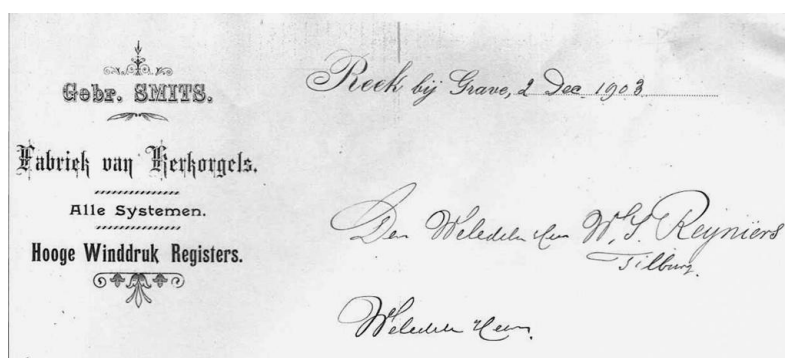 Gebr. SMITS.
Fabriek van Kerkorgels.
Alle Systemen.
Hooge Winddruk Registers.
Reek bij Grave, 2 Dec 1903
Den Weledelen Heer W. S. Reyniers
Tilburg.
Weledele Heer,